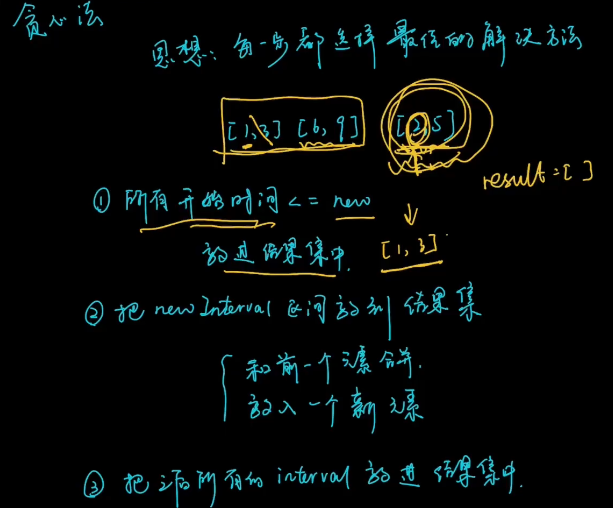 贪心法
思想：每一步都选择最佳的解决方法
[1,3] [6,9] [2,5]
result=[ ]
① 所有开始时间 <= new
放进结果集中. [1,3]
② 把 newInterval 区间放到结果集
和前一个元素合并.
放入一个新元素
③ 把之后所有的 interval 放进结果集中.